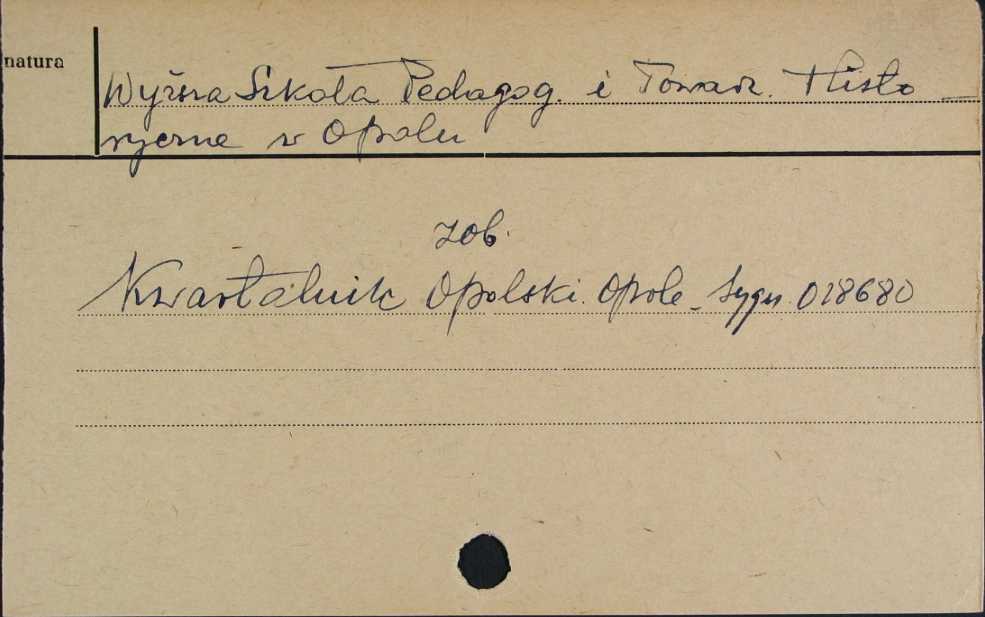 natura
Wyższa Szkoła Pedagog. i Towarz. Histo-
ryczne w Opolu
zob.
Kwartalnik Opolski. Opole - Sygn. 018680